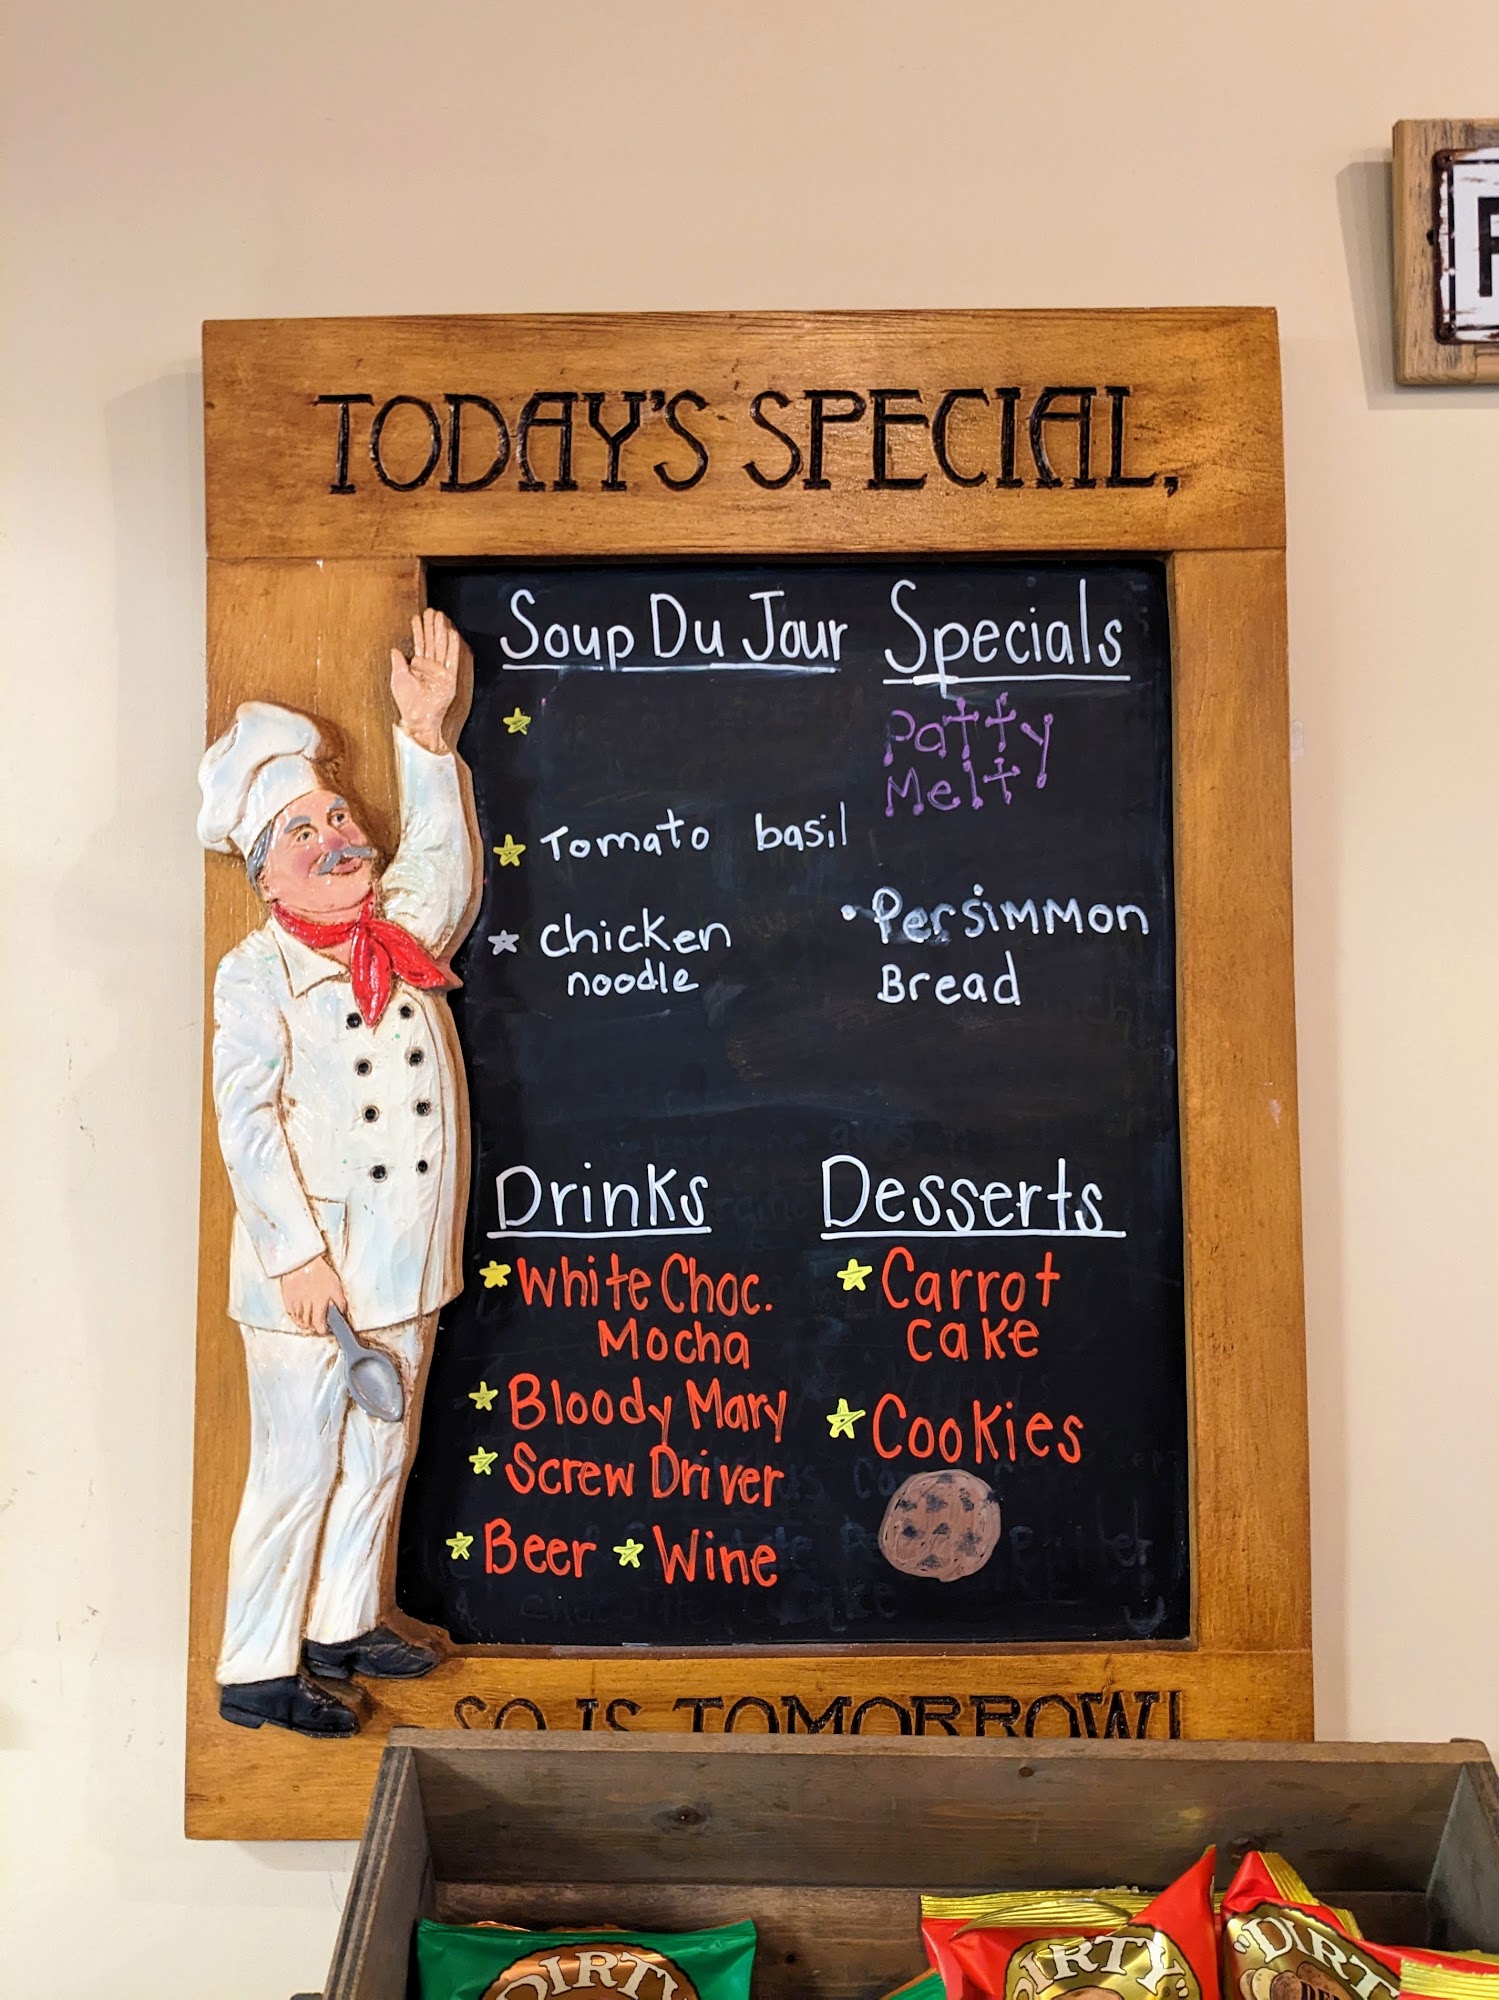 TODAY'S SPECIAL,
Soup Du Jour
Tomato basil
chicken
noodle
Specials
Patty
Melt
• Persimmon
Bread
Drinks
White Choc.
Mocha
Bloody Mary
Screw Driver
Beer Wine
Desserts
Carrot
cake
Cookies
SO IS TOMORROW!
DIRTY
DIRTY
"DIRTY